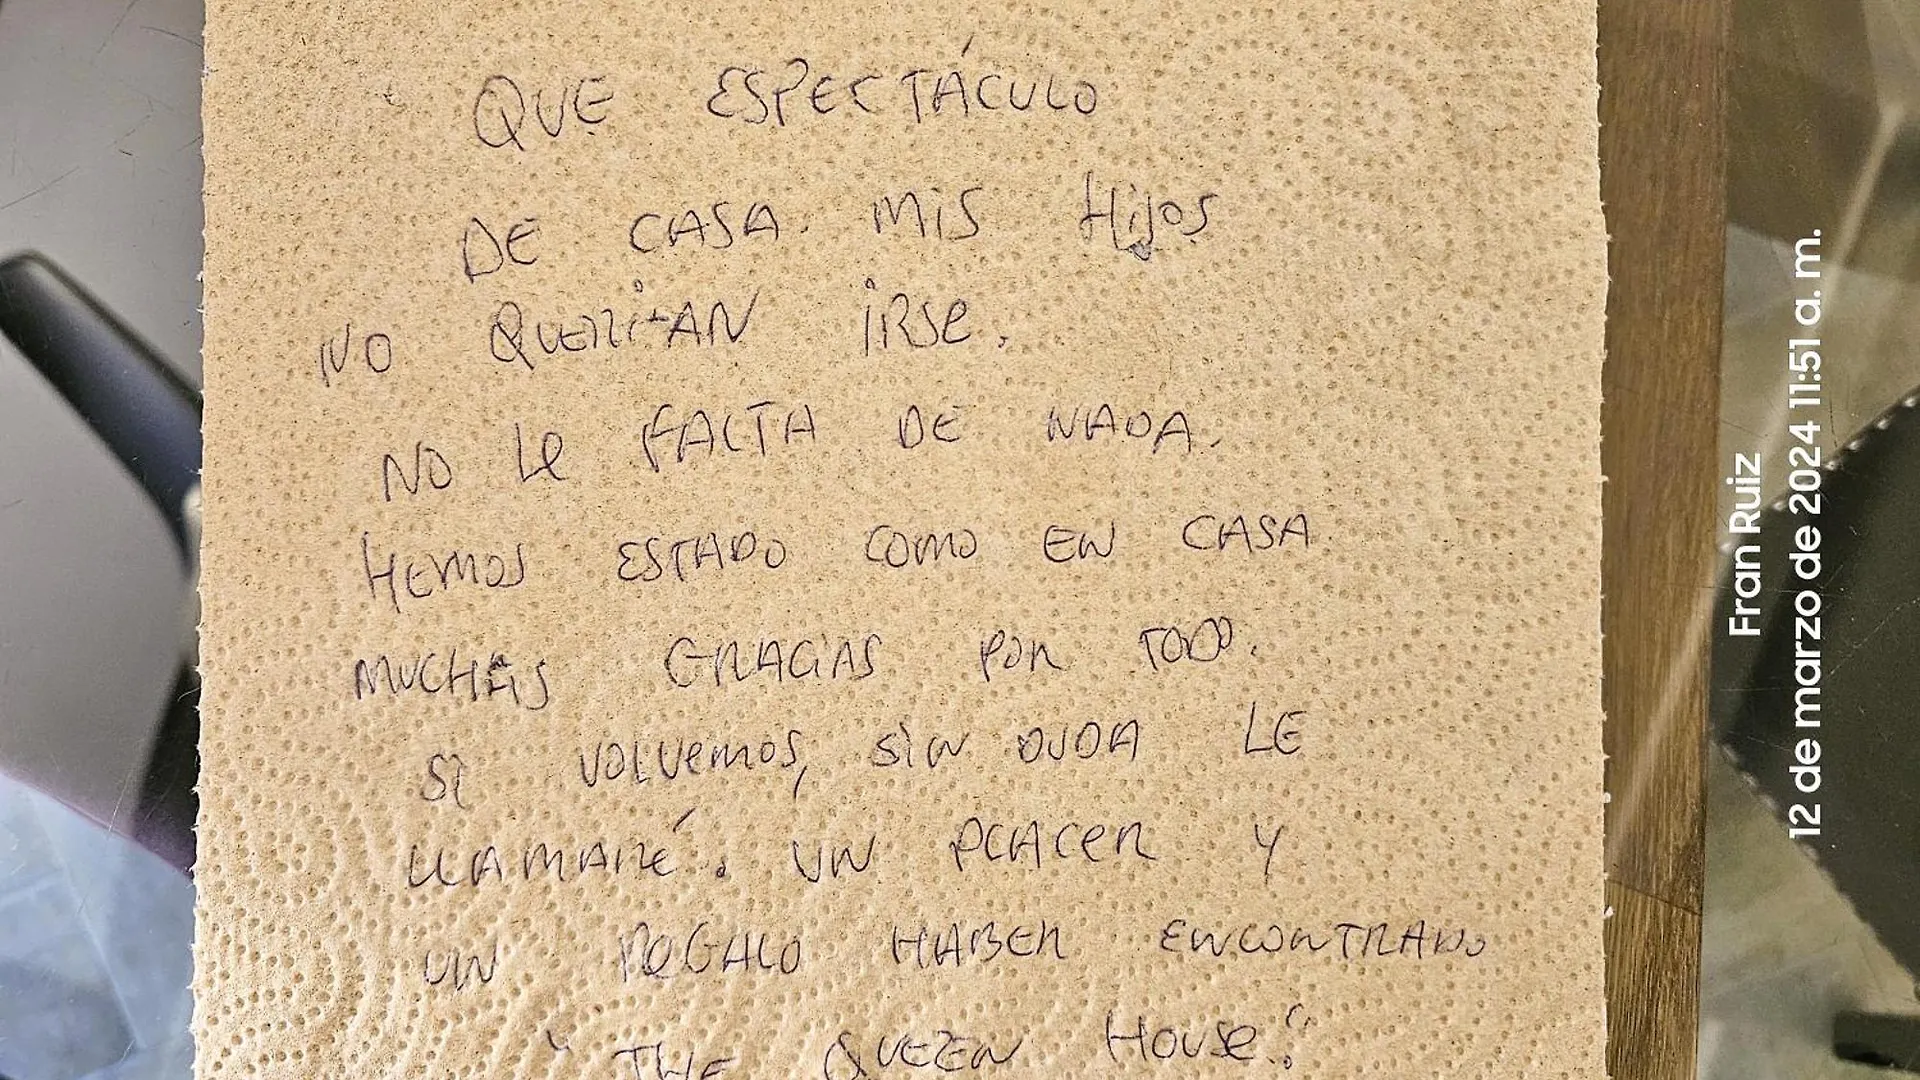 QUE ESPECTÁCULO
DE CASA. MIS HIJOS
NO QUERIAN IRSE.
NO LE FALTA DE NADA.
HEMOS ESTADO COMO EN CASA
MUCHAS GRACIAS POR TODO.
SI VOLVEMOS, SIN DUDA LE
LLAMARÉ. UN PLACER Y
UN REGALO HABER ENCONTRADO
"THE QUEEN HOUSE."
Fran Ruiz
12 de marzo de 2024 11:51 a. m.